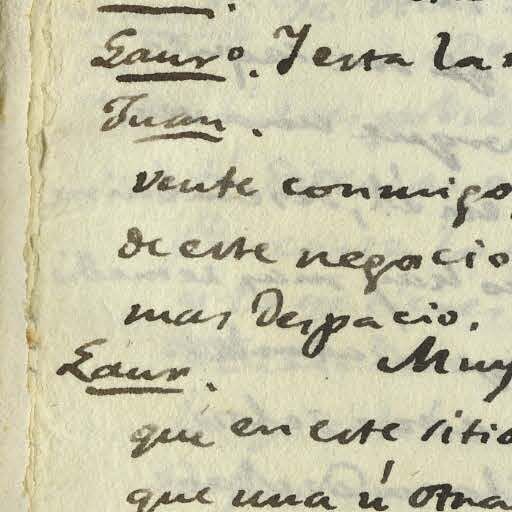 Laur.º Y esta la
Juan.
vente conmigo,
de este negocio
mas Despacio.
Laur. Muy
que en este sitio
que una ù otra